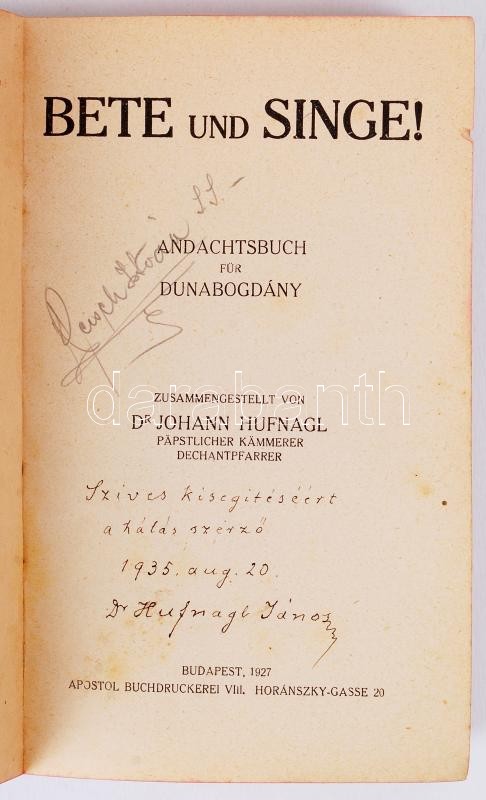 BETE UND SINGE!
István
ANDACHTSBUCH
FÜR
DUNABOGDÁNY
ZUSAMMENGESTELLT VON
darabanth
Dr JOHANN HUFNAGL
PÄPSTLICHER KÄMMERER
DECHANTPFARRER
Szives kisegitéséért
a hálás szerző
1935. aug. 20.
Dr Hufnagl János
BUDAPEST, 1927
APOSTOL BUCHDRUCKEREI VIII. HORÁNSZKY-GASSE 20